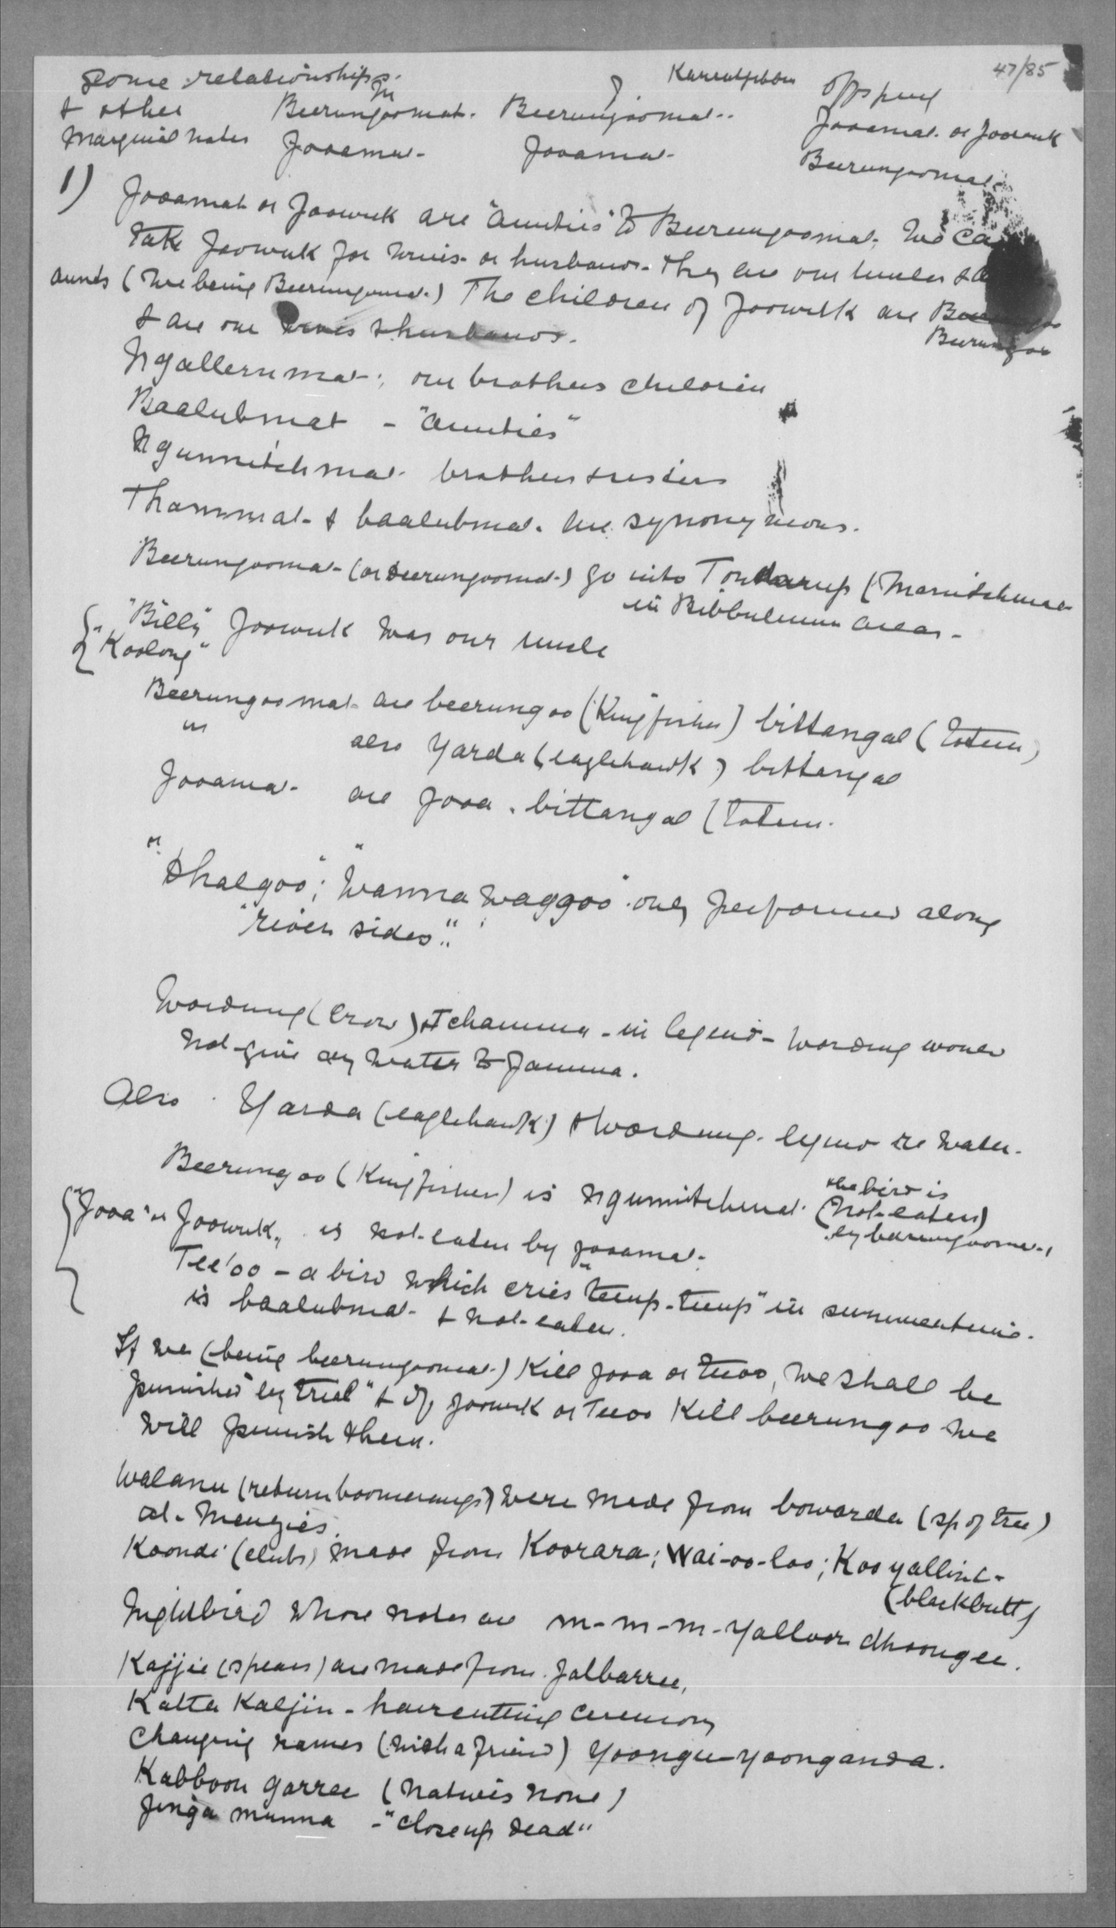 47/85
Some relationships
& other
Marginal notes
Beerungoomat. Beerungoomat.. offspring
Jooamat. or Joowuk
Jooamat - Jooamat - Beerungoomat
1) Jooamat or Joowuk are "aunties" to Beerungoomat. We
take Joowuk for wives or husbands - they are our uncles &
aunts (we being Beerungoomat.) The children of Joowuk are
Beerungoo
& are our wives & husbands.
Ngallernmat: our brothers children
Baalubmat - "aunties"
Ngunnitchmat. brothers & sisters
Thammat - & baalubmat. are synonymous.
Beerungoomat - (or beerungoomat.) go into Tondarup (Manitchmat
in Bibbulmun areas -
"Billy" Joowuk was our uncle
"Koolong"
Beerungoomat are beerungoo (Kingfisher) bittangal (totem)
also Yarda (eaglehawk) bittangal
Jooamat. are jooa. bittangal (totem.
"Dhalgoo"; "wanna waggoo" only performed along
"river sides".
Wordung (crow) & Jchamma - in legend - Wordung would
not give any water to Jamma.
Also Yarda (eaglehawk) & Wordung. legend re water.
Beerungoo (Kingfisher) is ngunnitchmat. (the bird is
not eaten)
by beerungoomat.
"Jooa" or Joowuk, is not eaten by jooamat.
Tee'oo - a bird which cries "teeup-teeup" in summertime.
is baalubmat. & not eaten.
If we (being beerungoomat.) kill jooa or teeoo, we shall be
punished by "trial" & if joowuk or teeoo kill beerungoo we
will punish them.
Walanu (return boomerangs) were made from bowarda (sp of tree)
at Menzies.
Koondi (clubs) made from Koorara; Wai-oo-loo; Kooyallinc -
(blackbutt)
Nightbird whose notes are m-m-m-yalloor dhoongee.
Kajjie (spears) are made from Jalbarree,
Katta Kaljin - haircutting ceremony
Changing names (with a friend) yoongu-yoonganda.
Kabboon garree (natives none)
Jinga munna - "close up dead"